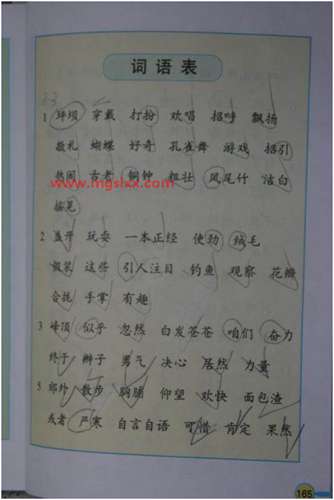 词语表
1 坪坝 穿戴 打扮 欢唱 招呼 飘扬
敬礼 蝴蝶 好奇 孔雀舞 游戏 招引
热闹 古老 铜钟 粗壮 凤尾竹 洁白
www.mgslxx.com
摇晃
2 盛开 玩耍 一本正经 使劲 绒毛
假装 这些 引人注目 钓鱼 观察 花瓣
合拢 手掌 有趣
3 峰顶 似乎 忽然 白发苍苍 咱们 奋力
终于 辫子 勇气 决心 居然 力量
5 郊外 散步 胸脯 仰望 欢快 面包渣
或者 严寒 自言自语 可惜 肯定 果然
165